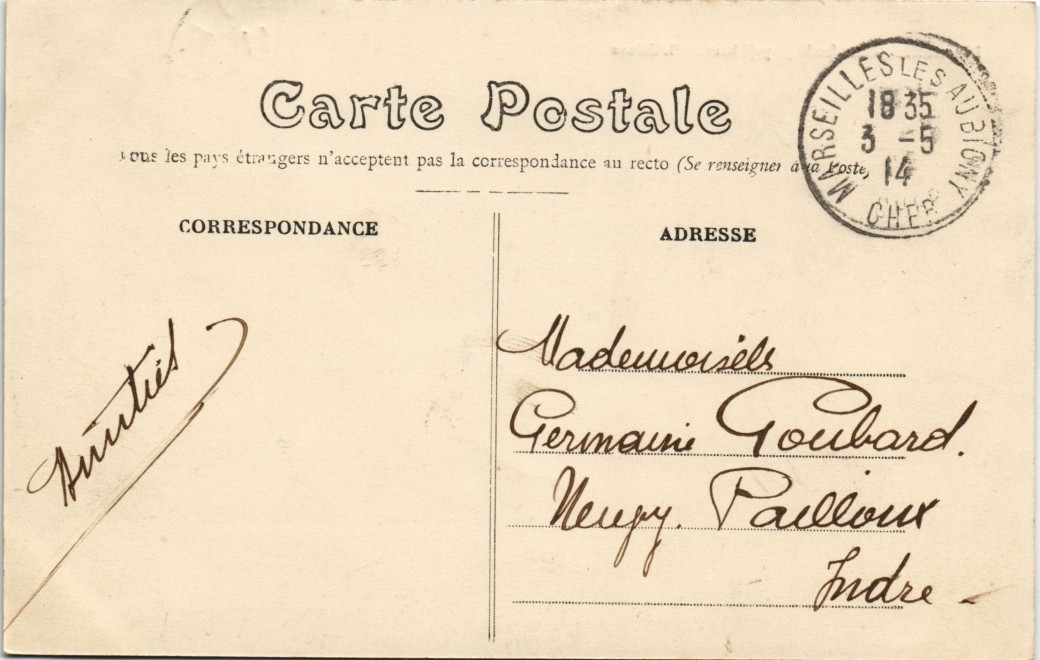 Carte Postale
Tous les pays étrangers n'acceptent pas la correspondance au recto (Se renseigner à la Poste)
MARSEILLES LES AUBIGNY
18 35
3 -5
14
CHER
CORRESPONDANCE
ADRESSE
Amitiés
Mademoiselle
Germaine Goubard.
Neuvy. Pailloux
Indre